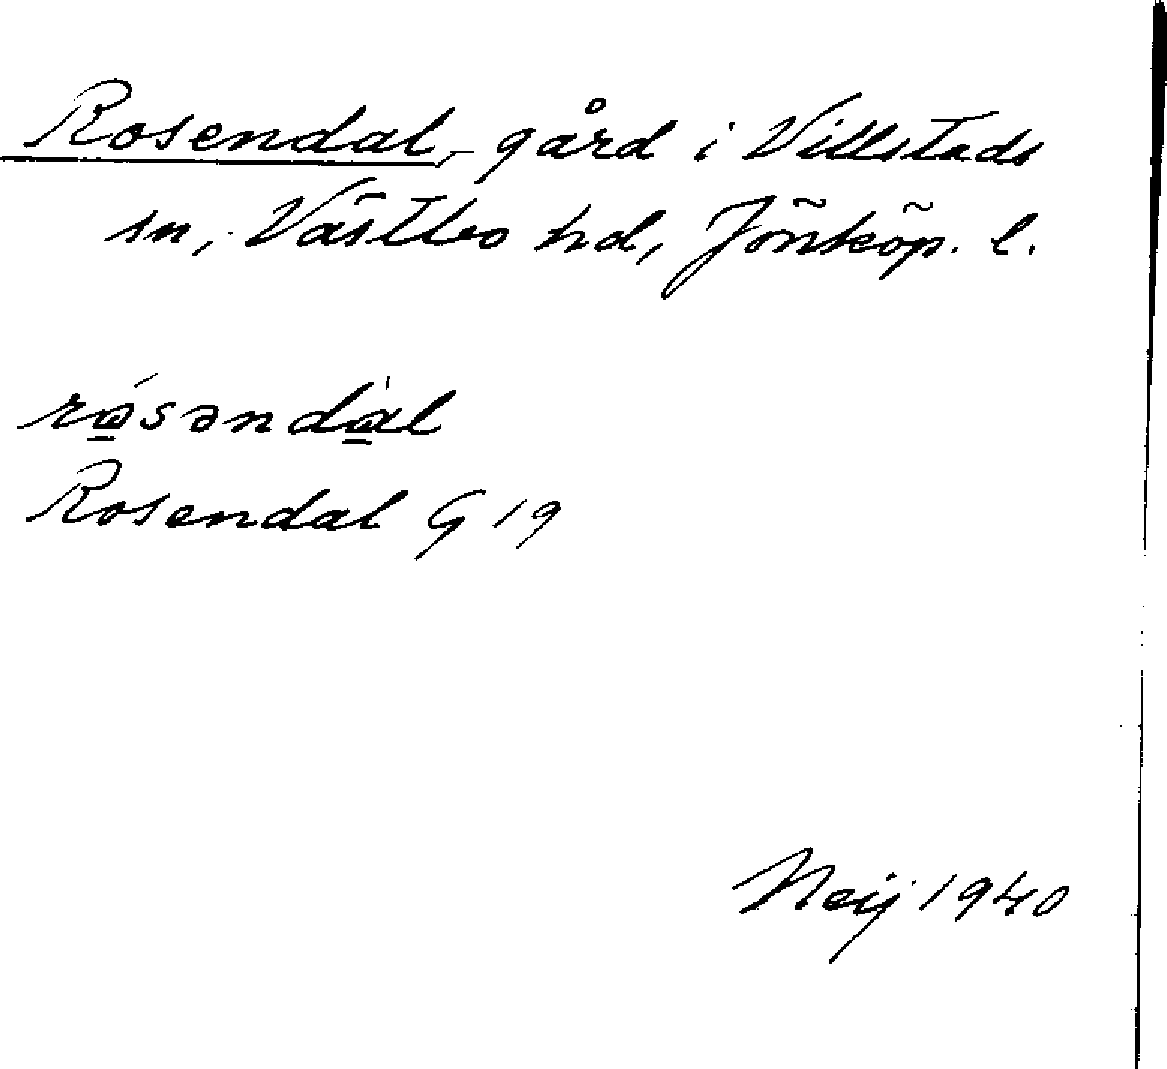 Rosendal, gård i Villstads
sn, Västbo hd, Jönköp. l.
rɷ́sәndɑ̀l
Rosendal G 19
Neij 1940